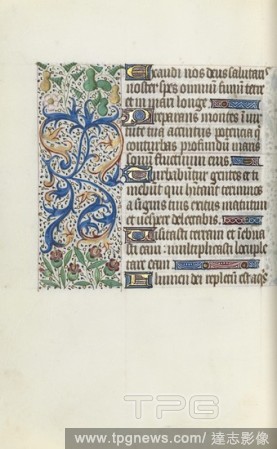 Exaudi nos deus salutaris
noster spes omnium finium terre
et in mari longe
Preparans montes in vir
tute tua accinctus potencia q
conturbas profundum maris
sonum fluctuum eius
Turbabuntur gentes et ti
mebunt qui habitant terminos
a signis tuis exitus matutini
et vespere delectabis
Visitasti terram et inebria
sti eam multiplicasti locuple
tare eam
Flumen dei repletum est aquis
TPG
www.tpgnews.com/ 達志影像